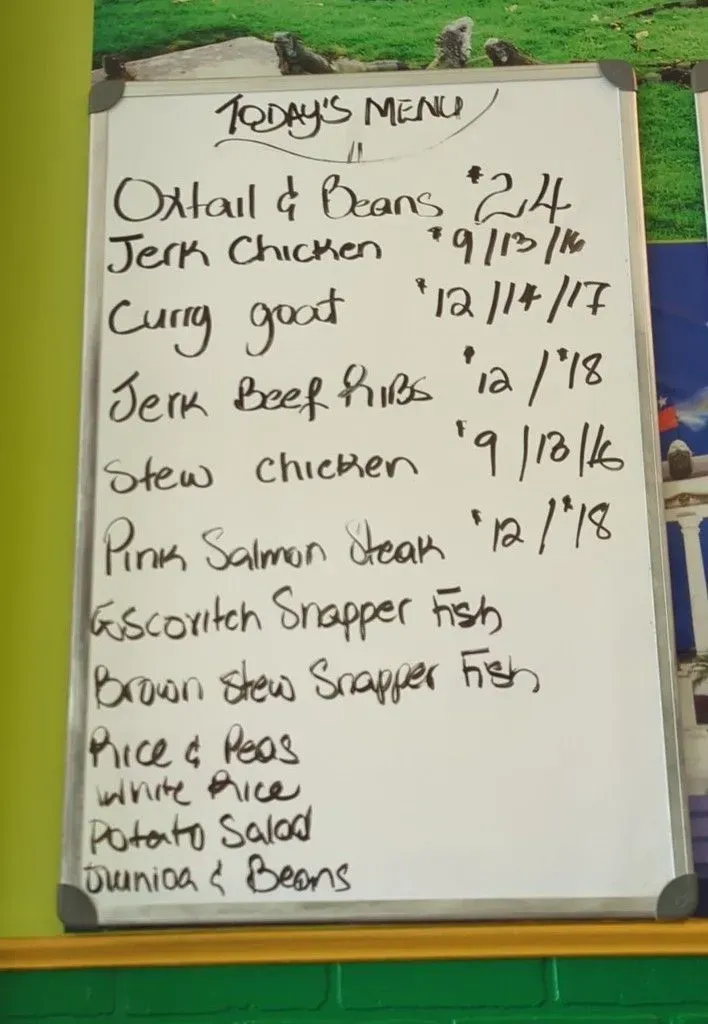 TODAY'S MENU
Oxtail & Beans $24
Jerk Chicken $9/13/16
Curry goat $12/14/17
Jerk Beef Ribs $12/$18
Stew Chicken $9/13/16
Pink Salmon Steak $12/$18
Escovitch Snapper Fish
Brown Stew Snapper Fish
Rice & Peas
White Rice
Potato Salad
& Beans